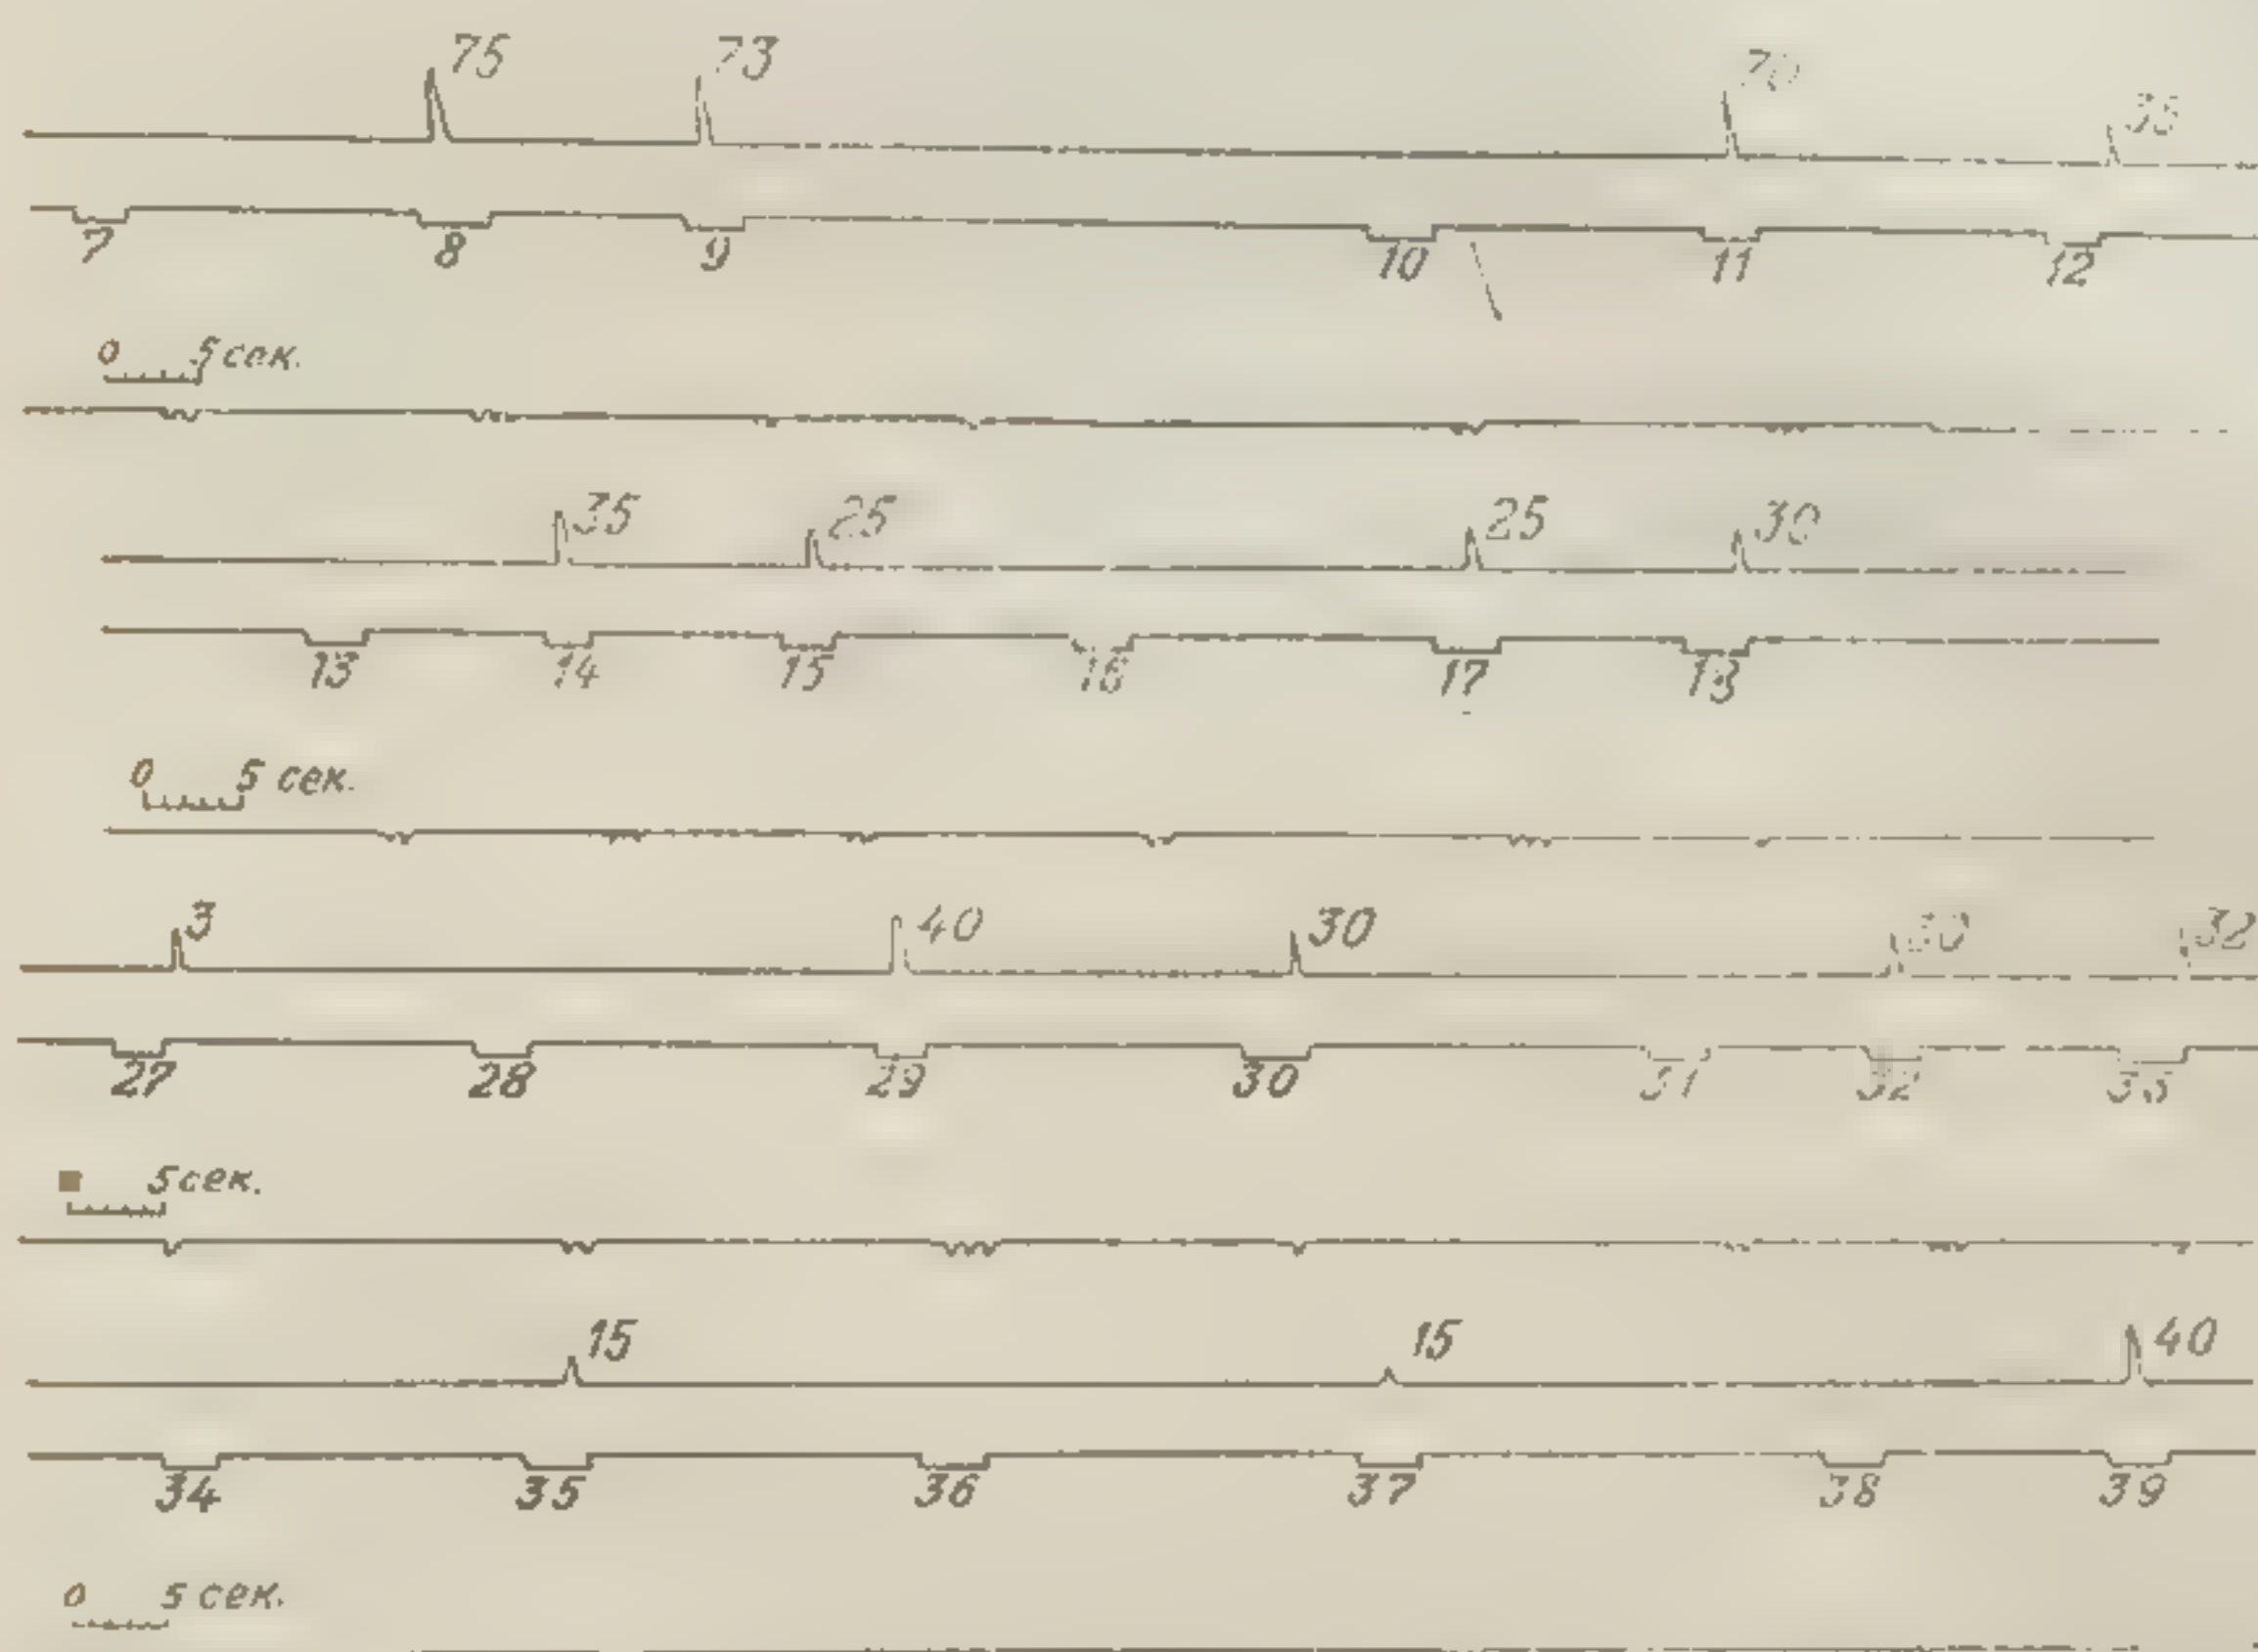 75 73 70 35
7 8 9 10 11 12
0 5 сек.
35 25 25 30
13 14 15 16 17 18
0 5 сек.
3 40 30 30 32
27 28 29 30 31 32 33
5 сек.
15 15 40
34 35 36 37 38 39
0 5 сек.